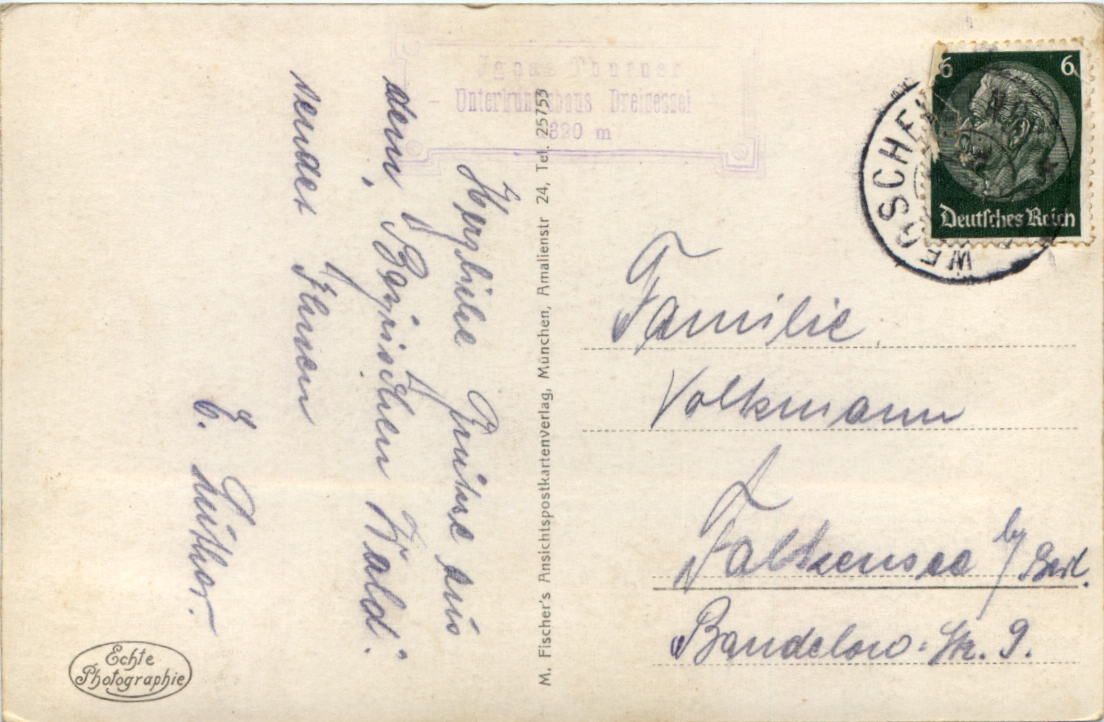 Unterkunftshaus Dreisessel
1320 m
Herzliche Grüsse aus
dem „Bayrischen Wald“
sendet Ihnen
E. Luther.
M. Fischer's Ansichtspostkartenverlag, München, Amalienstr 24, Tel. 25753
6 6
Deutsches Reich
WEGSCHEI
Familie
Volkmann
Falkensee b/ Berl.
Bandelow-Str. 9.
Echte
Photographie